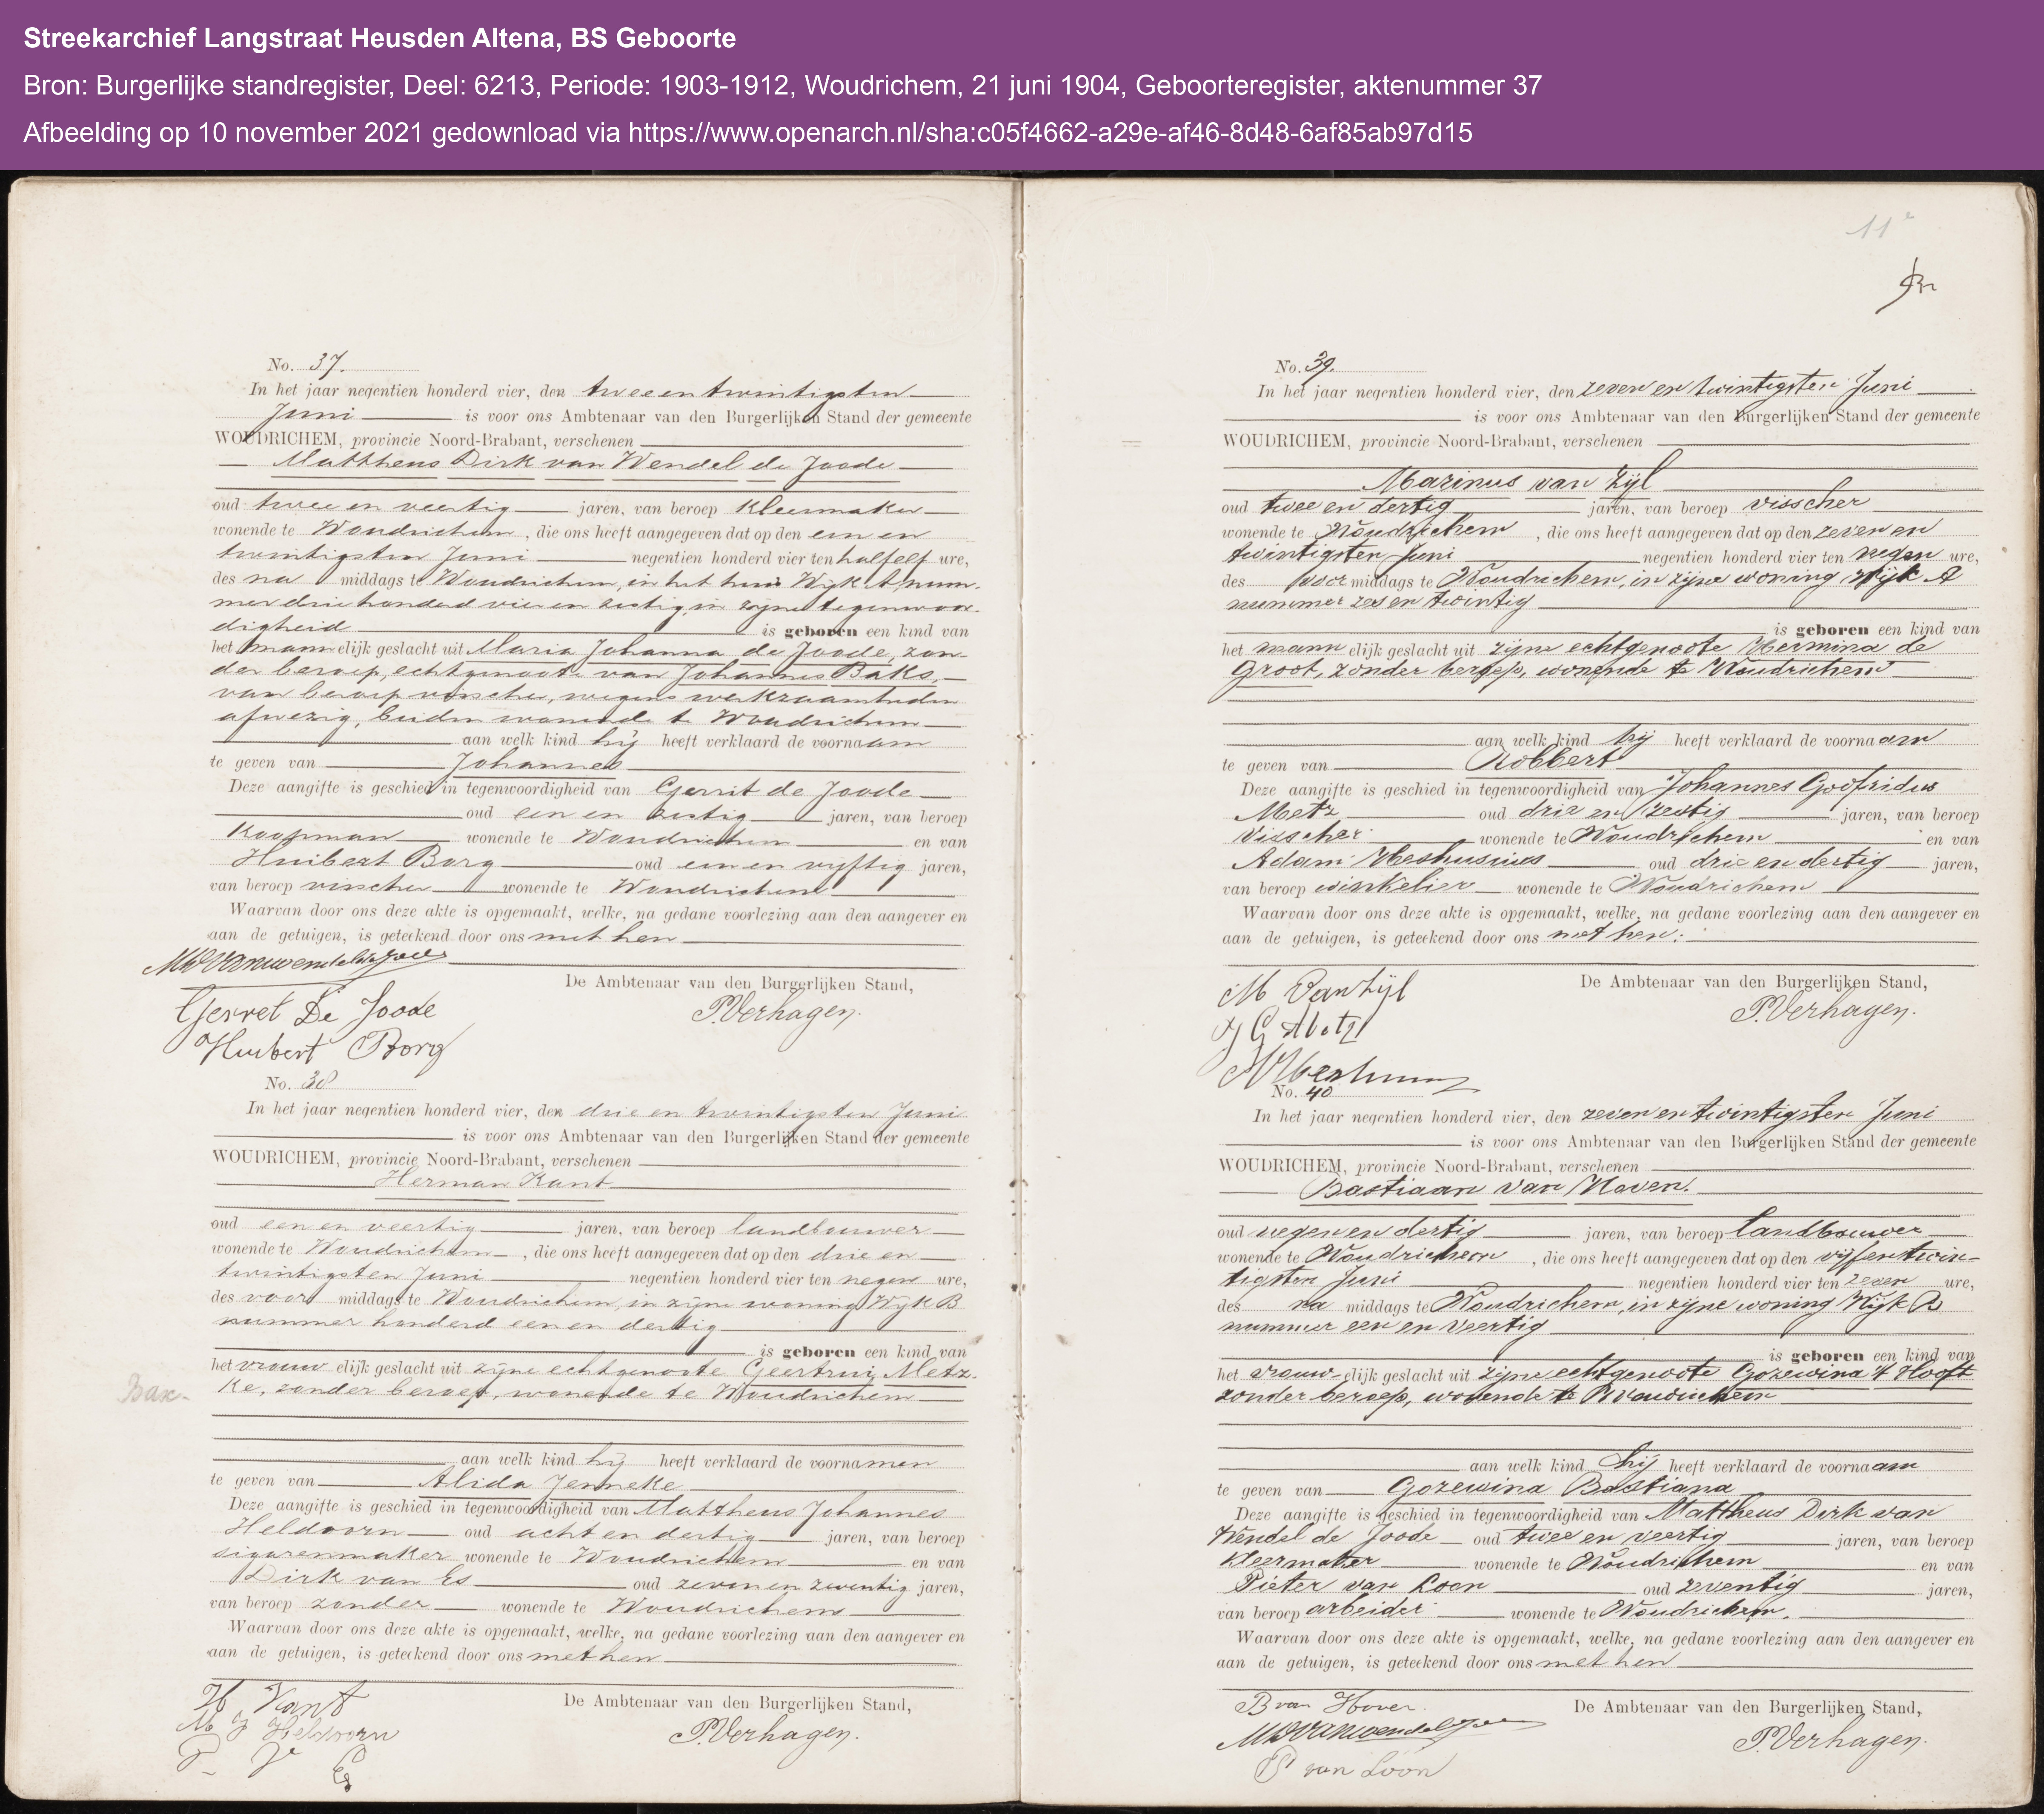 Streekarchief Langstraat Heusden Altena, BS Geboorte
Bron: Burgerlijke standregister, Deel: 6213, Periode: 1903-1912, Woudrichem, 21 juni 1904, Geboorteregister, aktenummer 37
Afbeelding op 10 november 2021 gedownload via https://www.openarch.nl/sha:c05f4662-a29e-af46-8d48-6af85ab97d15
No. 37.
In het jaar negentien honderd vier, den twee en twintigsten
Juni is voor ons Ambtenaar van den Burgerlijken Stand der gemeente
WOUDRICHEM, provincie Noord-Brabant, verschenen
Mattheus Dirk van Wendel de Joode
oud twee en veertig jaren, van beroep kleermaker
wonende te Woudrichem, die ons heeft aangegeven dat op den een en
twintigsten Juni negentien honderd vier ten half elf ure,
des na middags te Woudrichem, in het huis Wijk A, num-
mer drie honderd vier en zestig, in zijne tegenwoor-
digheid is geboren een kind van
het mannelijk geslacht uit Maria Johanna de Joode, zon-
der beroep, echtgenoote van Johannes Baks,
van beroep visscher, wegens werkzaamheden
afwezig, beiden wonende te Woudrichem
aan welk kind hij heeft verklaard de voornaam
te geven van Johannes
Deze aangifte is geschied in tegenwoordigheid van Gerrit de Joode
oud een en zestig jaren, van beroep
koopman wonende te Woudrichem en van
Huibert Borg oud een en vijftig jaren,
van beroep visscher wonende te Woudrichem
Waarvan door ons deze akte is opgemaakt, welke, na gedane voorlezing aan den aangever en
aan de getuigen, is geteekend door ons met hen
MDvanwendeldejoode
De Ambtenaar van den Burgerlijken Stand,
Gerret De Joode
P. Verhagen.
Huibert Borg
No. 38
In het jaar negentien honderd vier, den drie en twintigsten Juni
is voor ons Ambtenaar van den Burgerlijken Stand der gemeente
WOUDRICHEM, provincie Noord-Brabant, verschenen
Herman Kant
oud een en veertig jaren, van beroep landbouwer
wonende te Woudrichem, die ons heeft aangegeven dat op den drie en
twintigsten Juni negentien honderd vier ten negen ure,
des voor middags te Woudrichem, in zijne woning Wijk B
nummer honderd een en dertig
is geboren een kind van
het vrouwelijk geslacht uit zijne echtgenoote Geertrui Metz-
Bax-
ke, zonder beroep, wonende te Woudrichem
aan welk kind hij heeft verklaard de voornamen
te geven van Alida Jenneke
Deze aangifte is geschied in tegenwoordigheid van Mattheus Johannes
Heldoorn oud acht en dertig jaren, van beroep
sigarenmaker wonende te Woudrichem en van
Dirk van Es oud zeven en zeventig jaren,
van beroep zonder wonende te Woudrichem
Waarvan door ons deze akte is opgemaakt, welke, na gedane voorlezing aan den aangever en
aan de getuigen, is geteekend door ons met hen
H Kant
De Ambtenaar van den Burgerlijken Stand,
M J Heldoorn
P. Verhagen.
Es
11
No. 39.
In het jaar negentien honderd vier, den zeven en twintigsten Juni
is voor ons Ambtenaar van den Burgerlijken Stand der gemeente
WOUDRICHEM, provincie Noord-Brabant, verschenen
Marinus van Zijl
oud twee en dertig jaren, van beroep visscher
wonende te Woudrichem, die ons heeft aangegeven dat op den zeven en
twintigsten Juni negentien honderd vier ten negen ure,
des voor middags te Woudrichem, in zijne woning Wijk A
nummer zes en twintig
is geboren een kind van
het mannelijk geslacht uit zijne echtgenoote Hermina de
Groot, zonder beroep, wonende te Woudrichem
aan welk kind hij heeft verklaard de voornaam
te geven van Robbert
Deze aangifte is geschied in tegenwoordigheid van Johannes Godfridus
Metz oud drie en zestig jaren, van beroep
visscher wonende te Woudrichem en van
Adam Heshusius oud drie en dertig jaren,
van beroep winkelier wonende te Woudrichem
Waarvan door ons deze akte is opgemaakt, welke, na gedane voorlezing aan den aangever en
aan de getuigen, is geteekend door ons met hen.
M van Zijl
De Ambtenaar van den Burgerlijken Stand,
J G Metz
P. Verhagen.
No. 40
In het jaar negentien honderd vier, den zeven en twintigsten Juni
is voor ons Ambtenaar van den Burgerlijken Stand der gemeente
WOUDRICHEM, provincie Noord-Brabant, verschenen
Bastiaan van Hoven.
oud negen en dertig jaren, van beroep landbouwer
wonende te Woudrichem, die ons heeft aangegeven dat op den vijf en twin-
tigsten Juni negentien honderd vier ten zeven ure,
des na middags te Woudrichem, in zijne woning Wijk B
nummer een en veertig
is geboren een kind van
het vrouwelijk geslacht uit zijne echtgenoote Gozewina 't Hooft
zonder beroep, wonende te Woudrichem
aan welk kind hij heeft verklaard de voornaam
te geven van Gozewina Bastiana
Deze aangifte is geschied in tegenwoordigheid van Mattheus Dirk van
Wendel de Joode oud twee en veertig jaren, van beroep
kleermaker wonende te Woudrichem en van
Pieter van Loon oud zeventig jaren,
van beroep arbeider wonende te Woudrichem.
Waarvan door ons deze akte is opgemaakt, welke, na gedane voorlezing aan den aangever en
aan de getuigen, is geteekend door ons met hen
B van Hoven.
De Ambtenaar van den Burgerlijken Stand,
MDvanwendeldejoode
P. Verhagen.
P van Loon